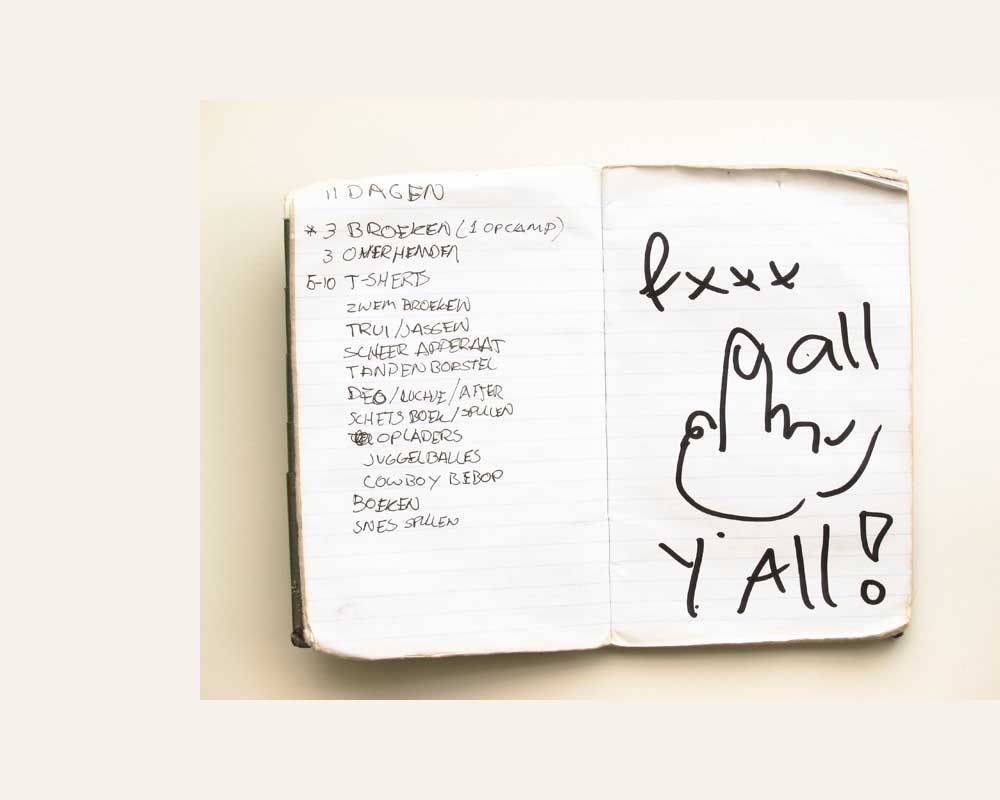 11 DAGEN
* 3 BROEKEN (1 OPCAMP)
3 OVERHEMDEN
5-10 T-SHERTS
ZWEM BROEKEN
TRUI / JASSEN
SCHEER APPERAAT
TANDENBORSTEL
DEO / LUCHJE / AFTER
SCHETS BOEK / SPULLEN
OPLADERS
JUGGELBALLES
COWBOY BEBOP
BOEKEN
SNES SPULLEN
fxxx
all
Y'All!